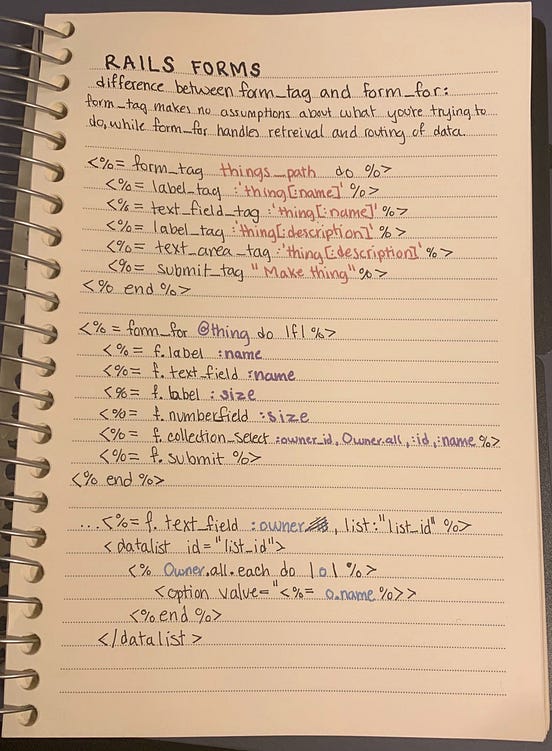 RAILS FORMS
difference between form_tag and form_for:
form_tag makes no assumptions about what you're trying to
do, while form_for handles retreival and routing of data.
<%= form_tag things_path do %>
<%= label_tag :'thing[:name]' %>
<%= text_field_tag :'thing[:name]' %>
<%= label_tag :'thing[:description]' %>
<%= text_area_tag :'thing[:description]' %>
<%= submit_tag "Make thing" %>
<% end %>
<%= form_for @thing do |f| %>
<%= f.label :name
<%= f. text_field :name
<%= f. label : size
<%= f. numberfield :size
<%= f. collection_select :owner_id, Owner.all, :id, :name %>
<%= f. submit %>
<% end %>
...<%= f. text_field : owner , list: "list_id" %>
<datalist id="list_id">
<% Owner.all.each do |o| %>
<option value="<%= o.name %>>
<% end %>
</datalist>